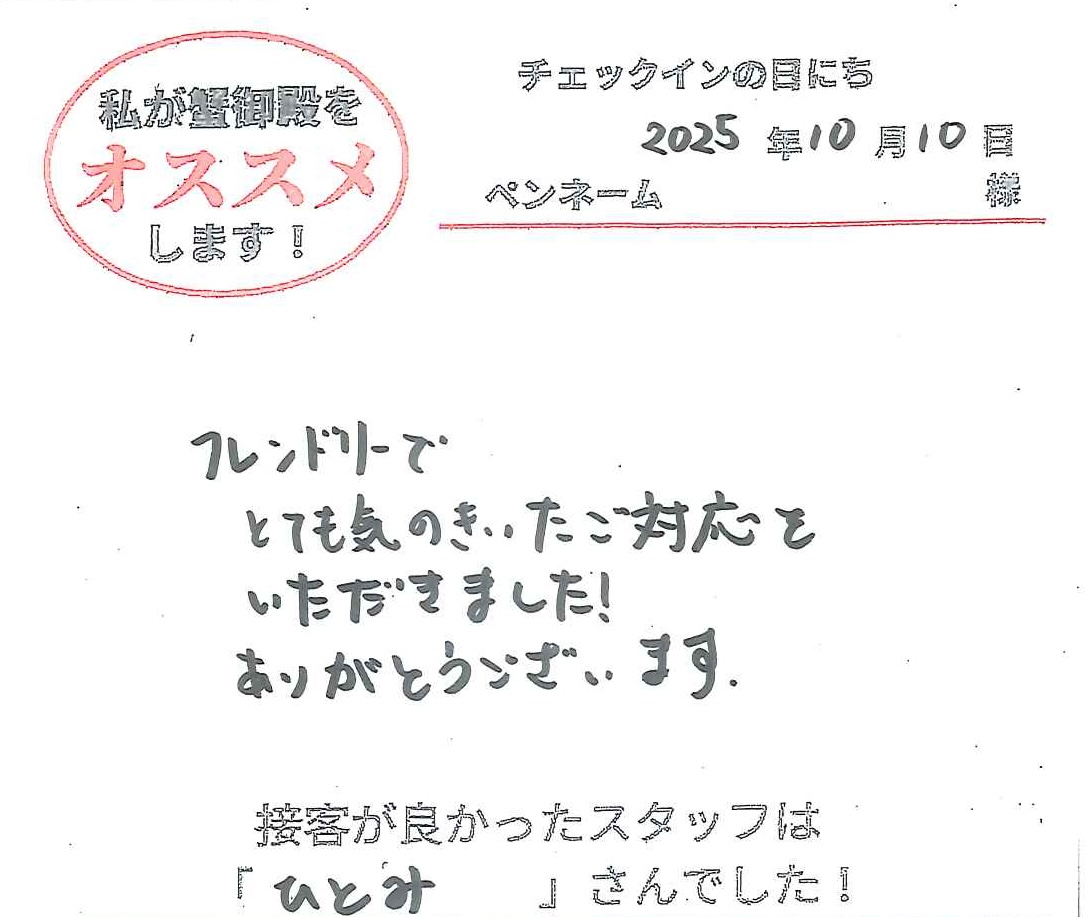 私が蟹御殿を
オススメ
します！
チェックインの日にち
2025年10月10日
ペンネーム 様
フレンドリーで
とても気のきいたご対応を
いただきました！
ありがとうございます.
接客が良かったスタッフは
「ひとみ 」さんでした！